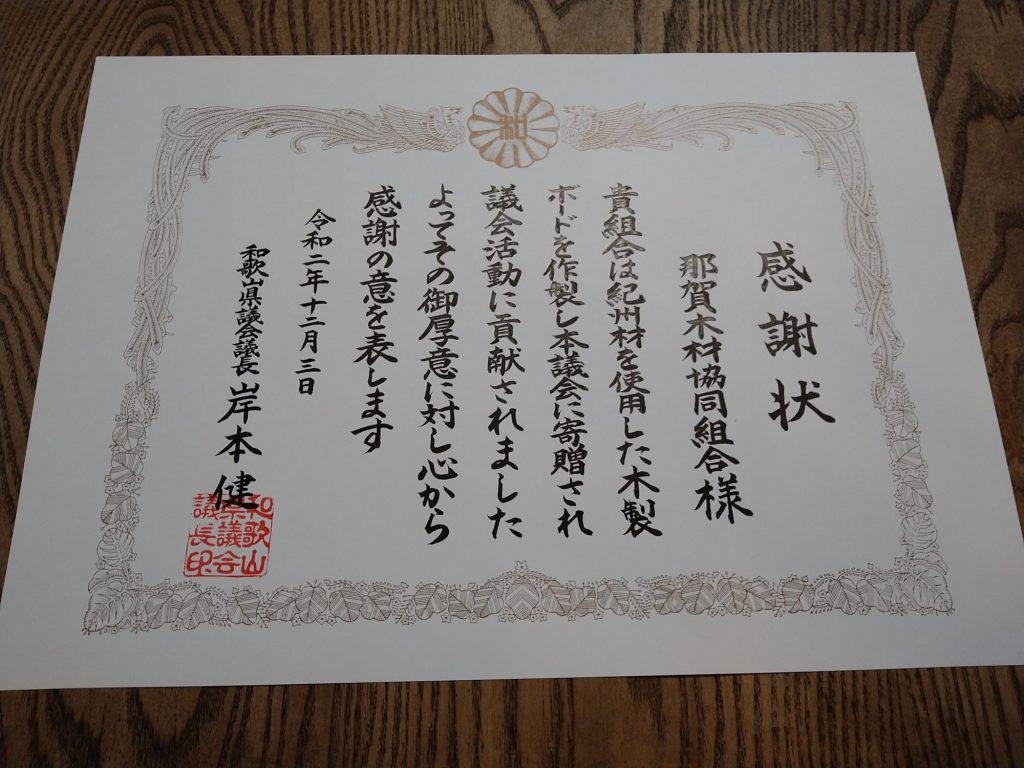 感謝状
那賀木材協同組合様
貴組合は紀州材を使用した木製
ボードを作製し本議会に寄贈され
議会活動に貢献されました
よってその御厚意に対し心から
感謝の意を表します
令和二年十二月三日
和歌山県議会議長 岸本健
和歌山
県議会
議長印